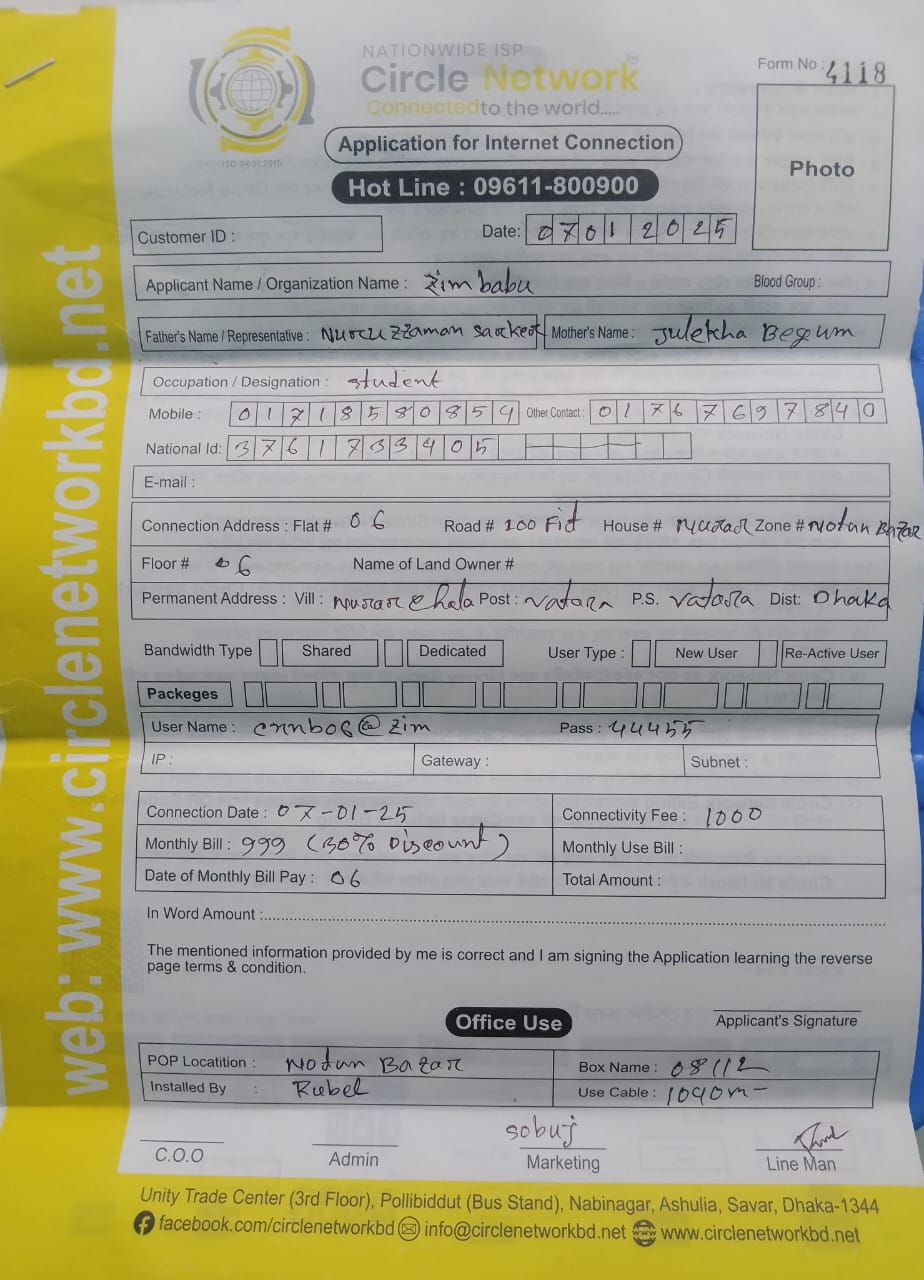 NATIONWIDE ISP
Circle Network
Connected to the world.....
ISO 9001:2015
Form No : 4118
Photo
Application for Internet Connection
Hot Line : 09611-800900
Customer ID :
Date: 07012025
Applicant Name / Organization Name : Zim babu Blood Group :
Father's Name / Representative : Nuruzzaman Sarker Mother's Name : Julekha Begum
Occupation / Designation : student
Mobile : 01718580854 Other Contact : 01767697840
National Id: 3761733405
E-mail :
Connection Address : Flat # 06 Road # 100 Fit House # Zone # Notun Bazar
Floor # 06 Name of Land Owner #
Permanent Address : Vill : Post : Vatara P.S. Vatara Dist: Dhaka
Bandwidth Type Shared Dedicated User Type : New User Re-Active User
Packeges
User Name : cnnb06@zim Pass : 44455
IP : Gateway : Subnet :
Connection Date : 07-01-25 Connectivity Fee : 1000
Monthly Bill : 999 (30% Discount) Monthly Use Bill :
Date of Monthly Bill Pay : 06 Total Amount :
In Word Amount :
The mentioned information provided by me is correct and I am signing the Application learning the reverse
page terms & condition.
Office Use
Applicant's Signature
POP Locatition : Notun Bazar Box Name : 08112
Installed By : Rubel Use Cable : 1090m
sobuj
C.O.O Admin Marketing Line Man
Unity Trade Center (3rd Floor), Pollibiddut (Bus Stand), Nabinagar, Ashulia, Savar, Dhaka-1344
facebook.com/circlenetworkbd info@circlenetworkbd.net www.circlenetworkbd.net
web: www.circlenetworkbd.net